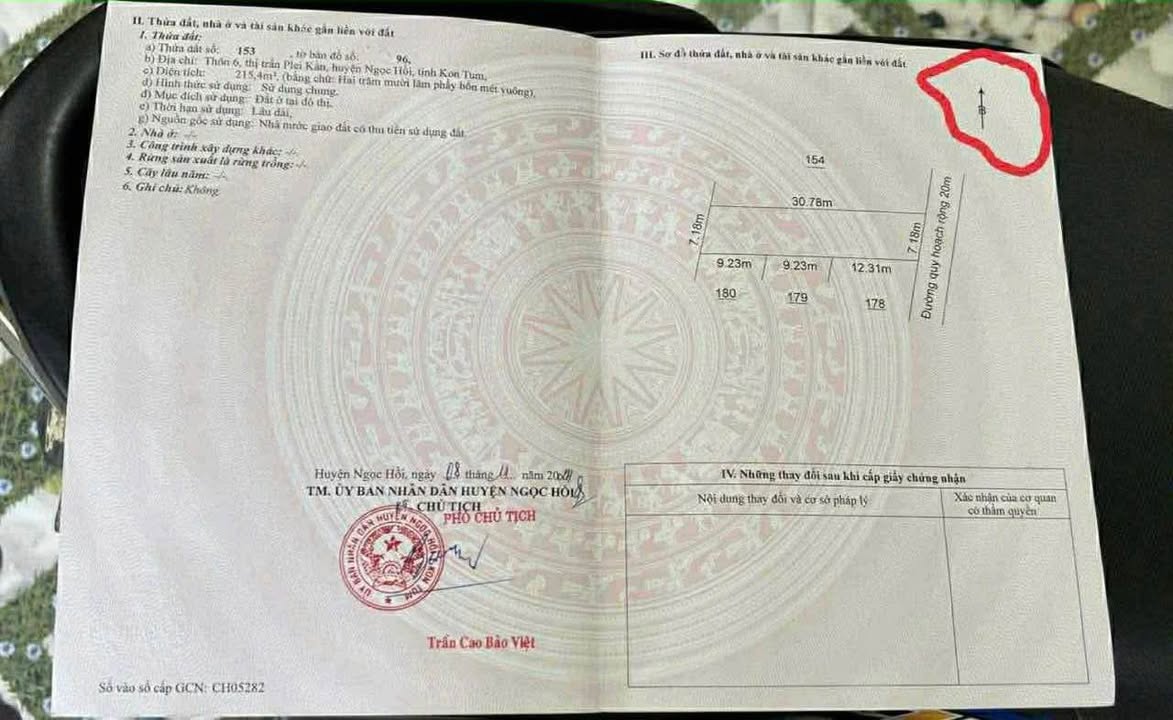 II. Thửa đất, nhà ở và tài sản khác gắn liền với đất
1. Thửa đất:
a) Thửa đất số: 153 , tờ bản đồ số: 96,
b) Địa chỉ: Thôn 6, thị trấn Plei Kần, huyện Ngọc Hồi, tỉnh Kon Tum,
c) Diện tích: 215,4m², (bằng chữ: Hai trăm mười lăm phẩy bốn mét vuông),
d) Hình thức sử dụng: Sử dụng chung,
đ) Mục đích sử dụng: Đất ở tại đô thị,
e) Thời hạn sử dụng: Lâu dài,
g) Nguồn gốc sử dụng: Nhà nước giao đất có thu tiền sử dụng đất.
2. Nhà ở: -/-.
3. Công trình xây dựng khác: -/-.
4. Rừng sản xuất là rừng trồng: -/-.
5. Cây lâu năm: -/-.
6. Ghi chú: Không.
Huyện Ngọc Hồi, ngày 08 tháng 11 năm
TM. ỦY BAN NHÂN DÂN HUYỆN NGỌC HỒI
CHỦ TỊCH
PHÓ CHỦ TỊCH
ỦY BAN NHÂN DÂN HUYỆN NGỌC HỒI
KON TUM
Trần Cao Bảo Việt
Số vào sổ cấp GCN: CH05282
III. Sơ đồ thửa đất, nhà ở và tài sản khác gắn liền với đất
B
154
30.78m
7.18m
7.18m
9.23m
9.23m
12.31m
180
179
178
Đường quy hoạch rộng 20m
IV. Những thay đổi sau khi cấp giấy chứng nhận
Nội dung thay đổi và cơ sở pháp lý
Xác nhận của cơ quan
có thẩm quyền